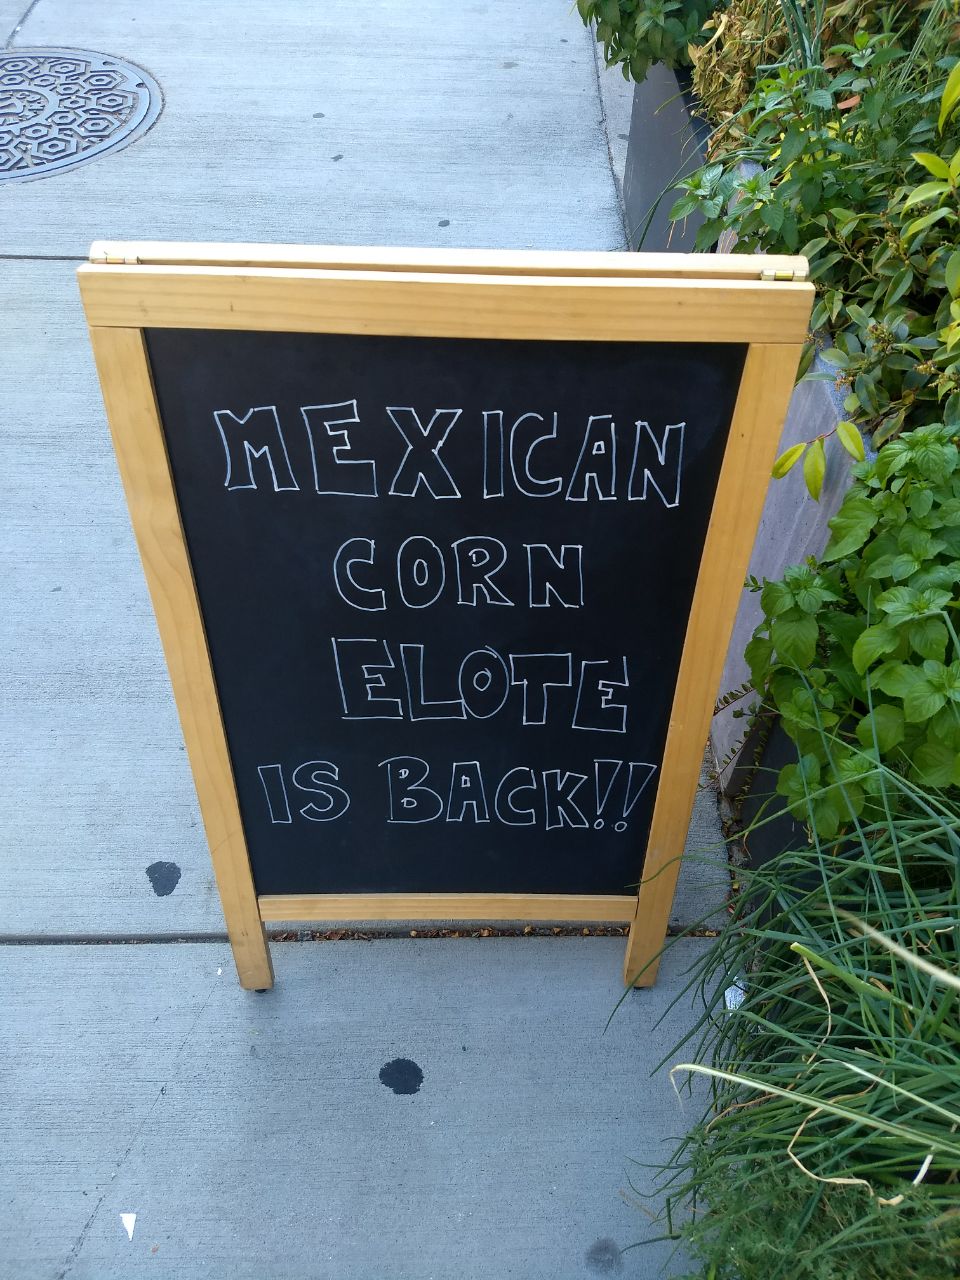 MEXICAN
CORN
ELOTE
IS BACK!!